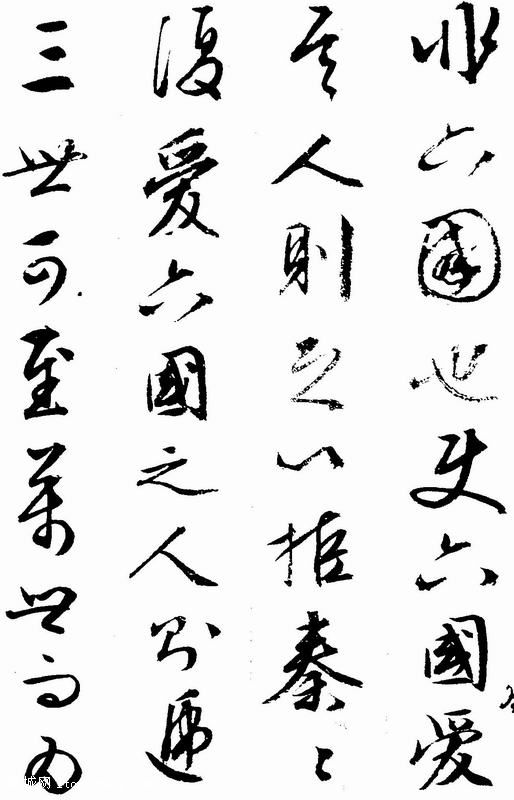 非六國也使六國愛
其人則足以拒秦〻
復愛六國之人則遞
三世可至萬世而為
城网